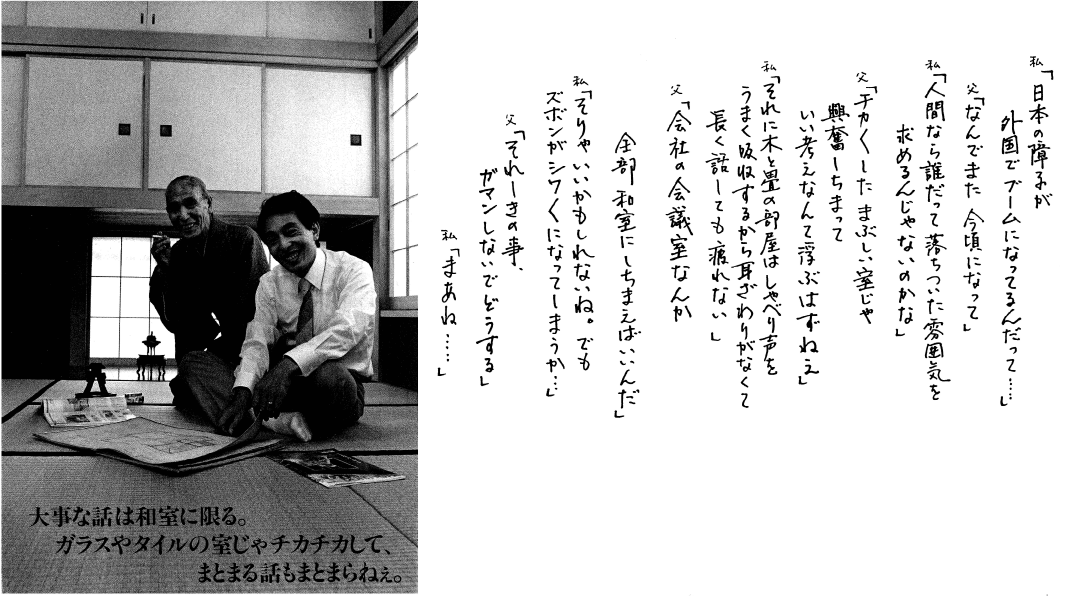 私「日本の障子が
外国でブームになってるんだって……」
父「なんでまた今頃になって」
私「人間なら誰だって落ちついた雰囲気を
求めるんじゃないのかな」
父「チカ〱したまぶしい室じゃ
興奮しちまって
いい考えなんて浮ぶはずねえ」
私「それに木と畳の部屋はしゃべり声を
うまく吸収するから耳ざわりがなくて
長く話しても疲れない」
父「会社の会議室なんか
全部和室にしちまえばいいんだ」
私「そりゃいいかもしれないね。でも
ズボンがシワ〱になってしまうか…」
父「それしきの事、
ガマンしないでどうする」
私「まあね……」
大事な話は和室に限る。
ガラスやタイルの室じゃチカチカして、
まとまる話もまとまらねぇ。